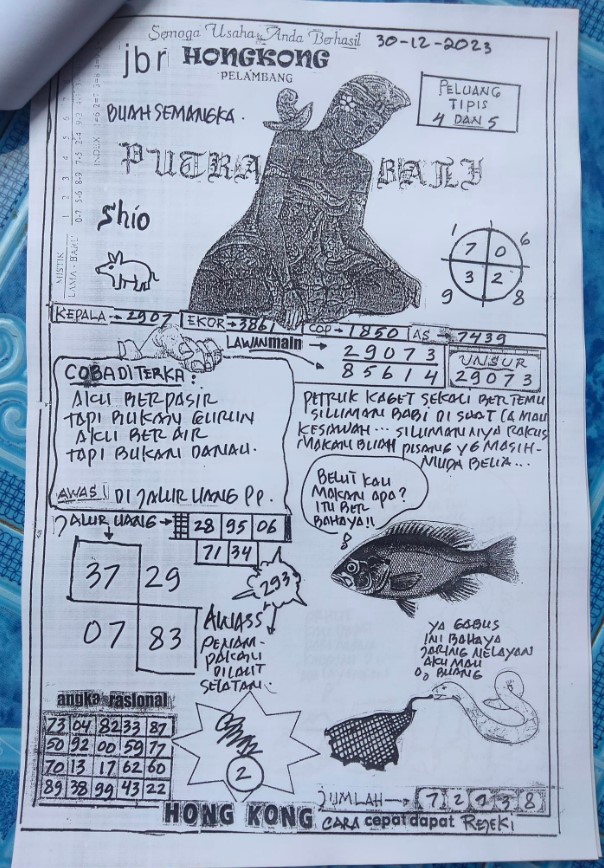 Semoga Usaha Anda Berhasil
30-12-2023
jbr HONGKONG
PELAMBANG
PELUANG
TIPIS
4 DAN 5
BUAH SEMANGKA.
PUTRA BALI
Shio
MISTIK
LAMA - BARU
INDEX
1 6
7 0
3 2
9 8
KEPALA → 2907 EKOR → 3861 COP → 1850 AS → 7439
LAWAN main → 29073
85614
UNSUR
29073
COBA DI TERKA:
AKU BERPASIR
TAPI BUKAN GURUN
AKU BER AIR
TAPI BUKAN DANAU.
AWAS! DI JALUR UANG Pp.
PETRUK KAGET SEKALI BERTEMU
SILUMAN BABI DI SAAT IA MAU
KESAWAH... SILUMAN NYA RAKUS
MAKAN BUAH PISANG YG MASIH-
MUDA BELIA...
BELUT KAU
MAKAN APA?
ITU BER
BAHAYA!!
JALUR UANG → 28 95 06
71 34
37 29
07 83
293
AWASS
PENAM-
PAKAN
DILAUT
SELATAN.
YA GABUS
INI BAHAYA
JARING NELAYAN
AKU MAU
BUANG
angka rasional
73 04 82 33 87
50 92 00 59 77
70 13 17 62 60
89 38 99 43 22
2
JUMLAH → 7 2 2 3 8
HONG KONG CARA cepat dapat REJEKI